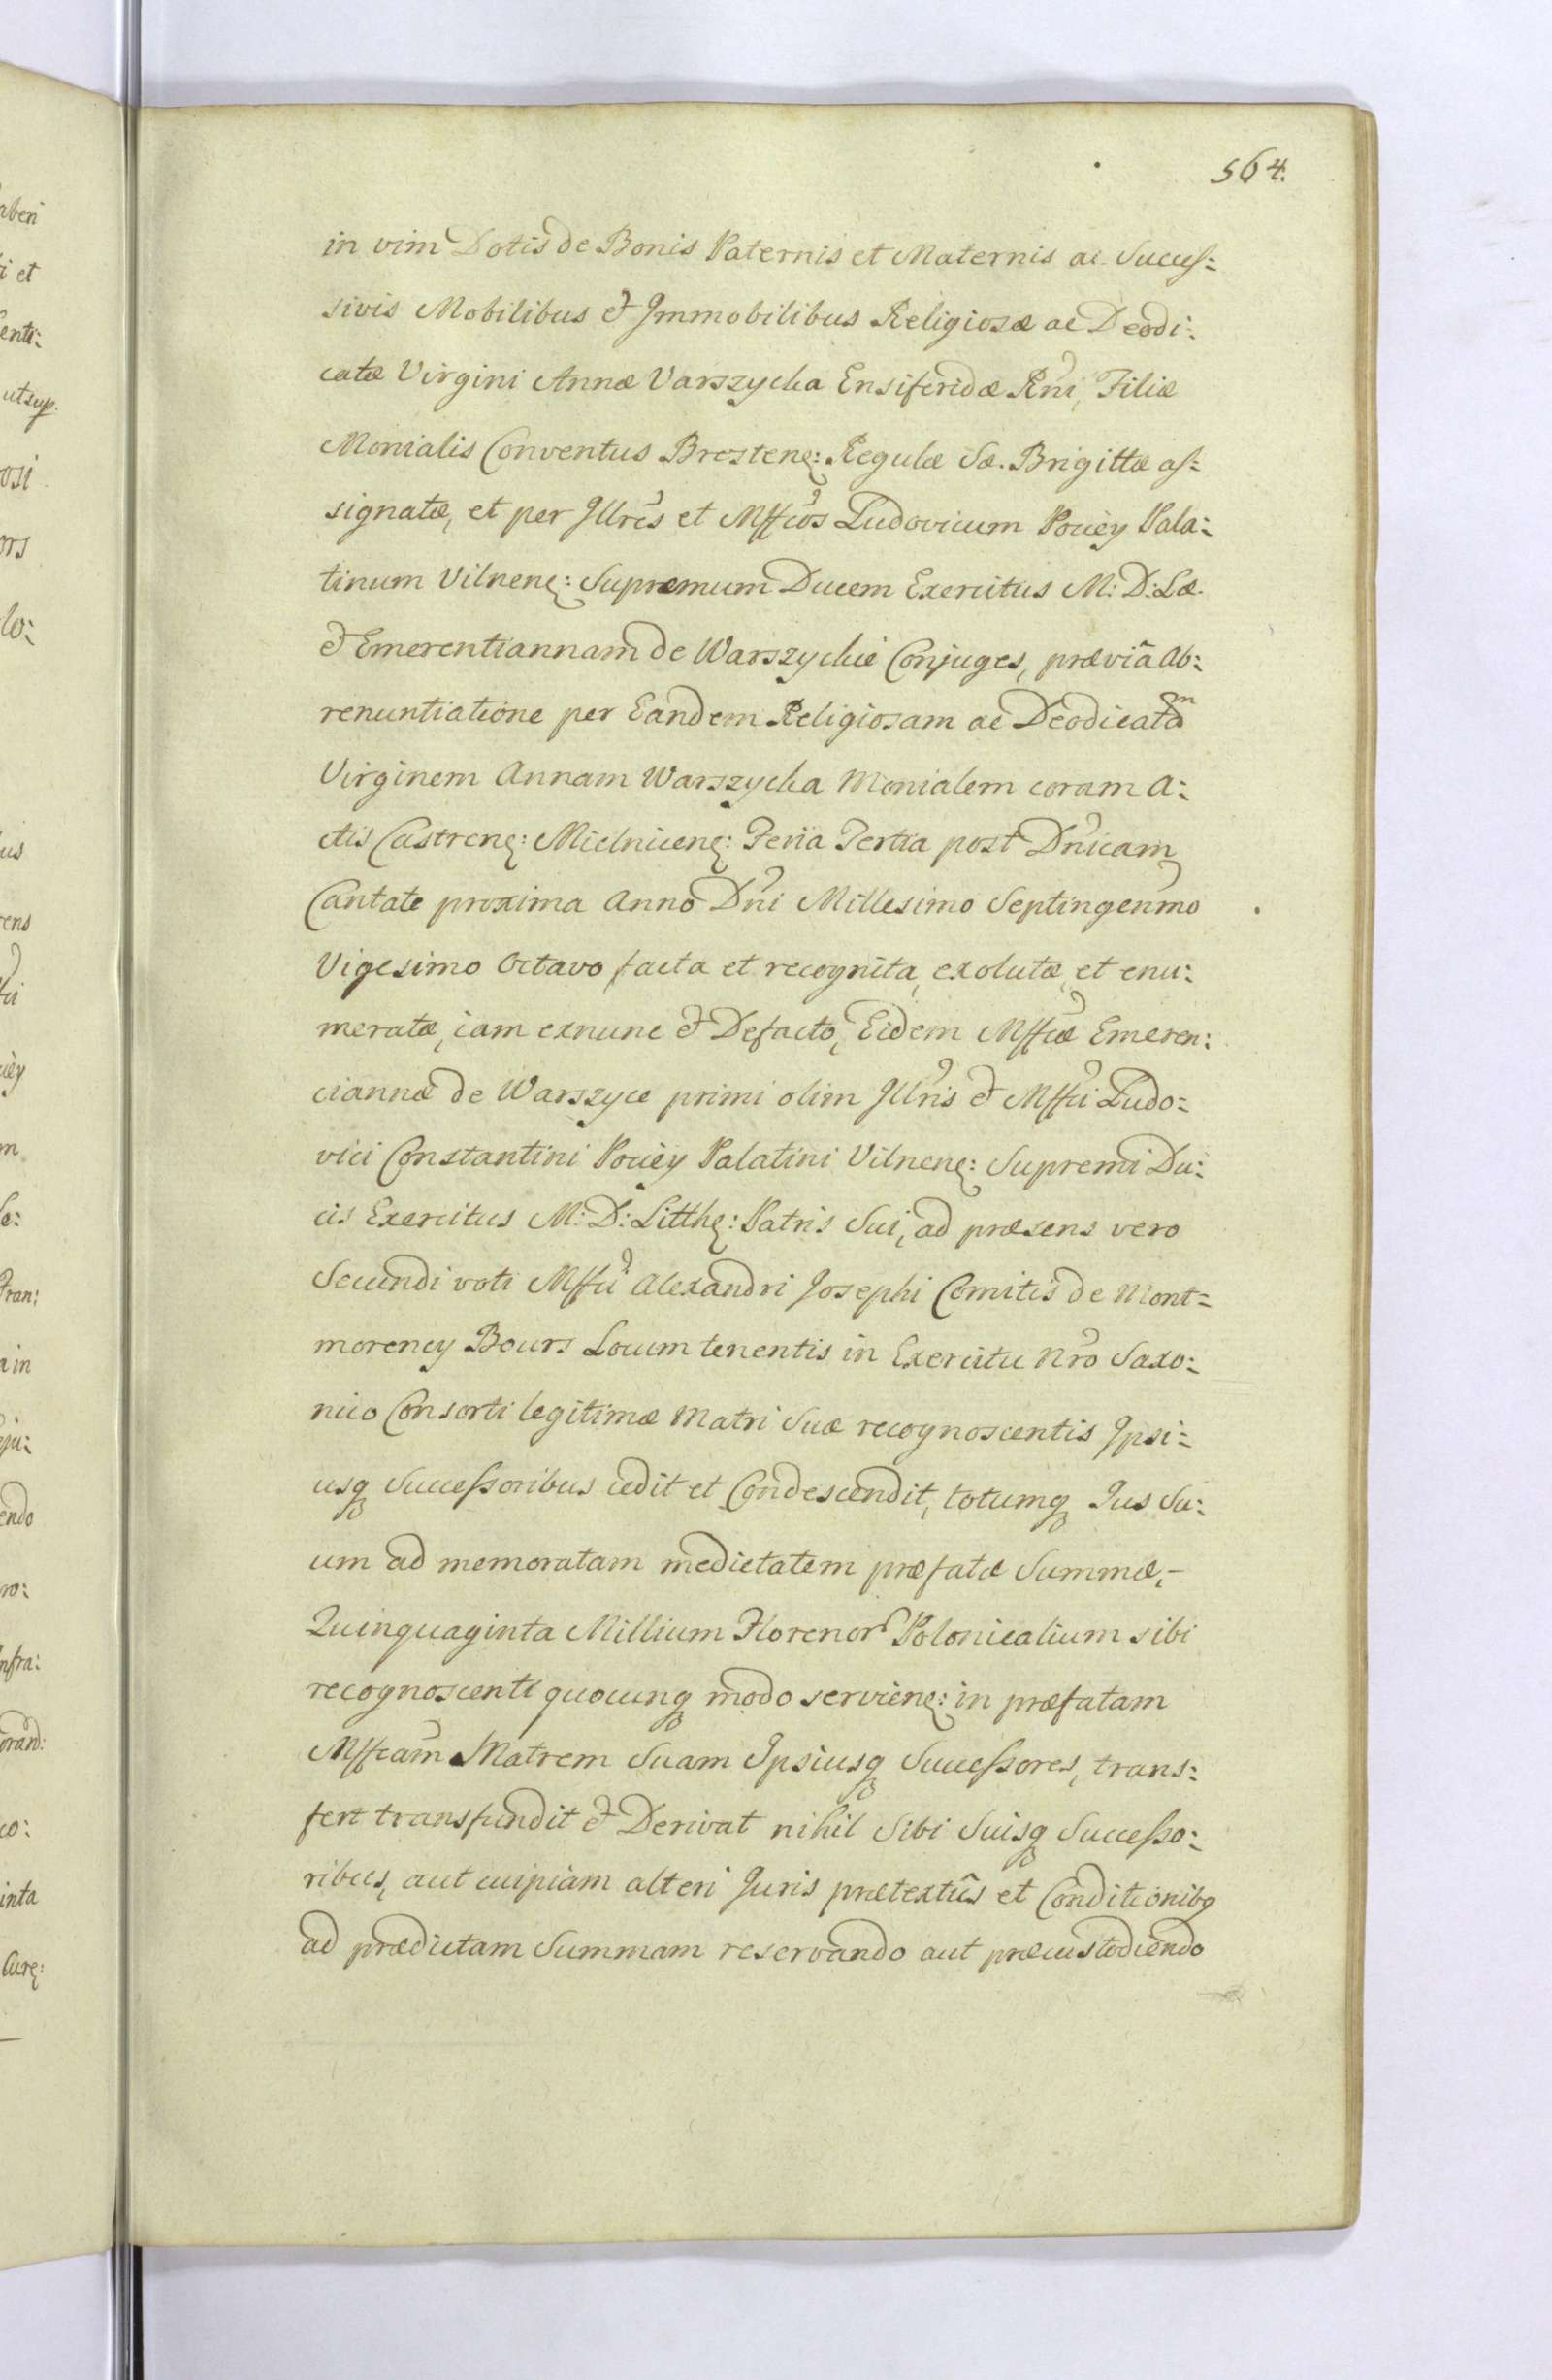 564.
in vim Dotis de Bonis Paternis et Maternis ac Succes:
sivis Mobilibus & Immobilibus Religiosæ ac Deodi:
catæ Virgini Annæ Varszycka Ensiferidæ Rńi, Filiæ
Monialis Conventus Bresteneę: Regulæ Sæ. Brigittæ as:
signatæ, et per Illres et Mffcos Ludovicum Pociey Pala:
tinum Vilneneę: Supremum Ducem Exercitus M: D: Læ.
& Emerentiannam de Warszyckie Conjuges, præviâ Ab:
renuntiatione per Eandem Religiosam ac Deodicatam
Virginem Annam Warszycka Monialem coram A:
ctis Castreneę: Mielniceneę: Feria Tertia post Dnicam
Cantate proxima Anno Dni Millesimo Septingenmo
Vigesimo Octavo facta et recognita, exolutæ, et enu:
meratæ, iam exnunc & Defacto, Eidem Mffcæ Emeren:
ciannæ de Warszyce primi olim Illris & Mffci Ludo:
vici Constantini Pociey Palatini Vilneneę: Supremi Du:
cis Exercitus M: D: Litthę: Patris Sui, ad præsens vero
Secundi voti Mffci Alexandri Josephi Comitis de Mont=
morency Bours Locum tenentis in Exercitu Nro Saxo:
nico Consorti legitimæ Matri Suæ recognoscentis Ipsi:
usq Successoribus cedit et Condescendit, totumq Jus Su:
um ad memoratam medietatem præfatæ Summæ,-
Quinquaginta Millium Florenor Polonicalium sibi
recognoscenti quocunq modo servieneę: in præfatam
Mffcam Matrem Suam Ipsiusq Successores, trans:
fert transfundit & Derivat nihil Sibi Suisq Successo:
ribus, aut cuipiam alteri Juris prætextûs et Conditionibq
ad prædictam Summam reservando aut præcustodiendo
aberi
i et
enti:
utsup.
osi
ors
lo:
us
rens
m
Fran:
in
endo
ro:
nfra:
co:
inta
Cureę: